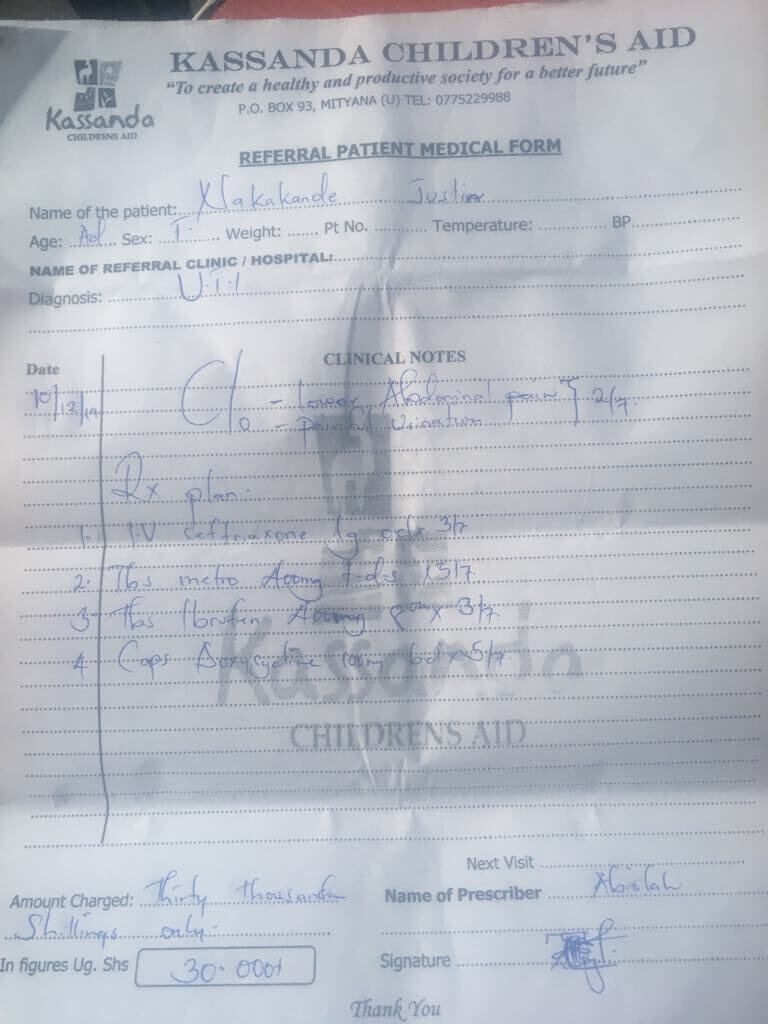 KASSANDA CHILDREN'S AID
"To create a healthy and productive society for a better future"
P.O. BOX 93, MITYANA (U) TEL: 0775229988
Kassanda
CHILDRENS AID
REFERRAL PATIENT MEDICAL FORM
Name of the patient: Nakakande Justine
Age: Ad Sex: F Weight: ...... Pt No. .......... Temperature: ............. BP..................
NAME OF REFERRAL CLINIC / HOSPITAL:
Diagnosis: U.T.I
Date CLINICAL NOTES
10/12/19 C/o - lower Abdominal pain } 2/7
- painful urination
Rx plan:
1. I.V ceftriaxone 1g od x 3/7
2. Tbs metro 400mg t.d.s x 5/7
3 Tbs Ibrufen 400mg x 3/7
4 Caps Doxycycline 100mg bd x 5/7
Kassanda
CHILDRENS AID
Next Visit
Amount Charged: Thirty thousand
Shillings only.
Name of Prescriber
In figures Ug. Shs 30.000/
Signature
Thank You